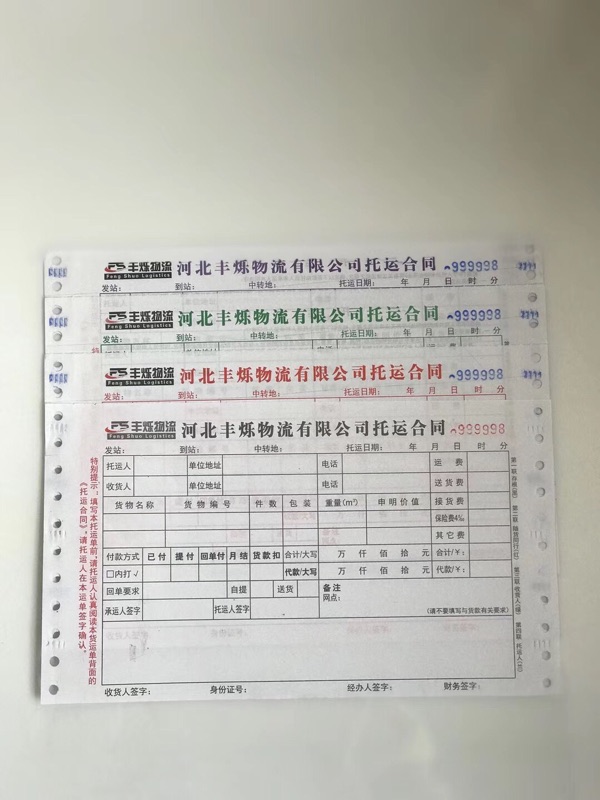 丰烁物流 河北丰烁物流有限公司托运合同 999998
Feng Shuo Logistics
发站: 到站: 中转地: 托运日期: 年 月 日 时 分
丰烁物流 河北丰烁物流有限公司托运合同 999998
Feng Shuo Logistics
发站: 到站: 中转地: 托运日期: 年 月 日 时 分
丰烁物流 河北丰烁物流有限公司托运合同 999998
Feng Shuo Logistics
发站: 到站: 中转地: 托运日期: 年 月 日 时 分
丰烁物流 河北丰烁物流有限公司托运合同 999998
Feng Shuo Logistics
发站: 到站: 中转地: 托运日期: 年 月 日 时 分
托运人 单位地址 电话 运费
收货人 单位地址 电话 送货费
货物名称 货物编号 件数 包装 重量(m³) 申明价值 接货费
保险费4‰
其它费
付款方式 已付 提付 回单付 月结 货款扣 合计/大写 万 仟 佰 拾 元 合计/¥:
□内打√ 代款/大写 万 仟 佰 拾 元 代款/¥:
回单要求 自提 送货 备注
网点:
承运人签字 托运人签字 (请不要填写与货款有关要求)
收货人签字: 身份证号: 经办人签字: 财务签字:
特别提示:填写本托运单前,请托运人认真阅读本货运单背面的
《托运合同》,请托运人在本运单签字确认。